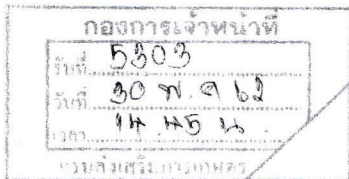 กองการเจ้าหน้าที่
รับที่ 5303
วันที่ 30 พ.ค 62
เวลา 14.45 น.
กรมส่งเสริมการเกษตร